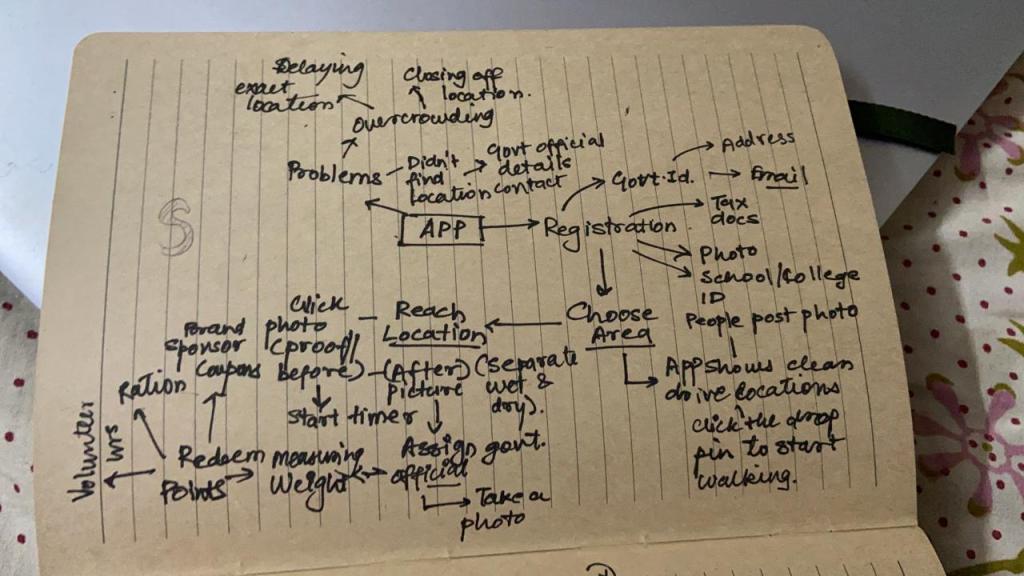 Delaying
exact
location
Closing off
location.
overcrowding
Problems
Didn't
find
location
Govt official
details
contact
APP
Registration
Govt. Id.
Address
Email
Tax
docs
Photo
School/College
ID
S
Choose
Area
People post photo
App shows clean
drive locations
click the drop
pin to start
walking.
Reach
Location
Click
photo
(proof//
before)
Start timer
(After)
picture
(separate
wet &
dry).
Assign govt.
official
Take a
photo
measuring
Weight
Redeem
Points
Brand
sponsor
Coupons
Ration
Volunteer
hrs